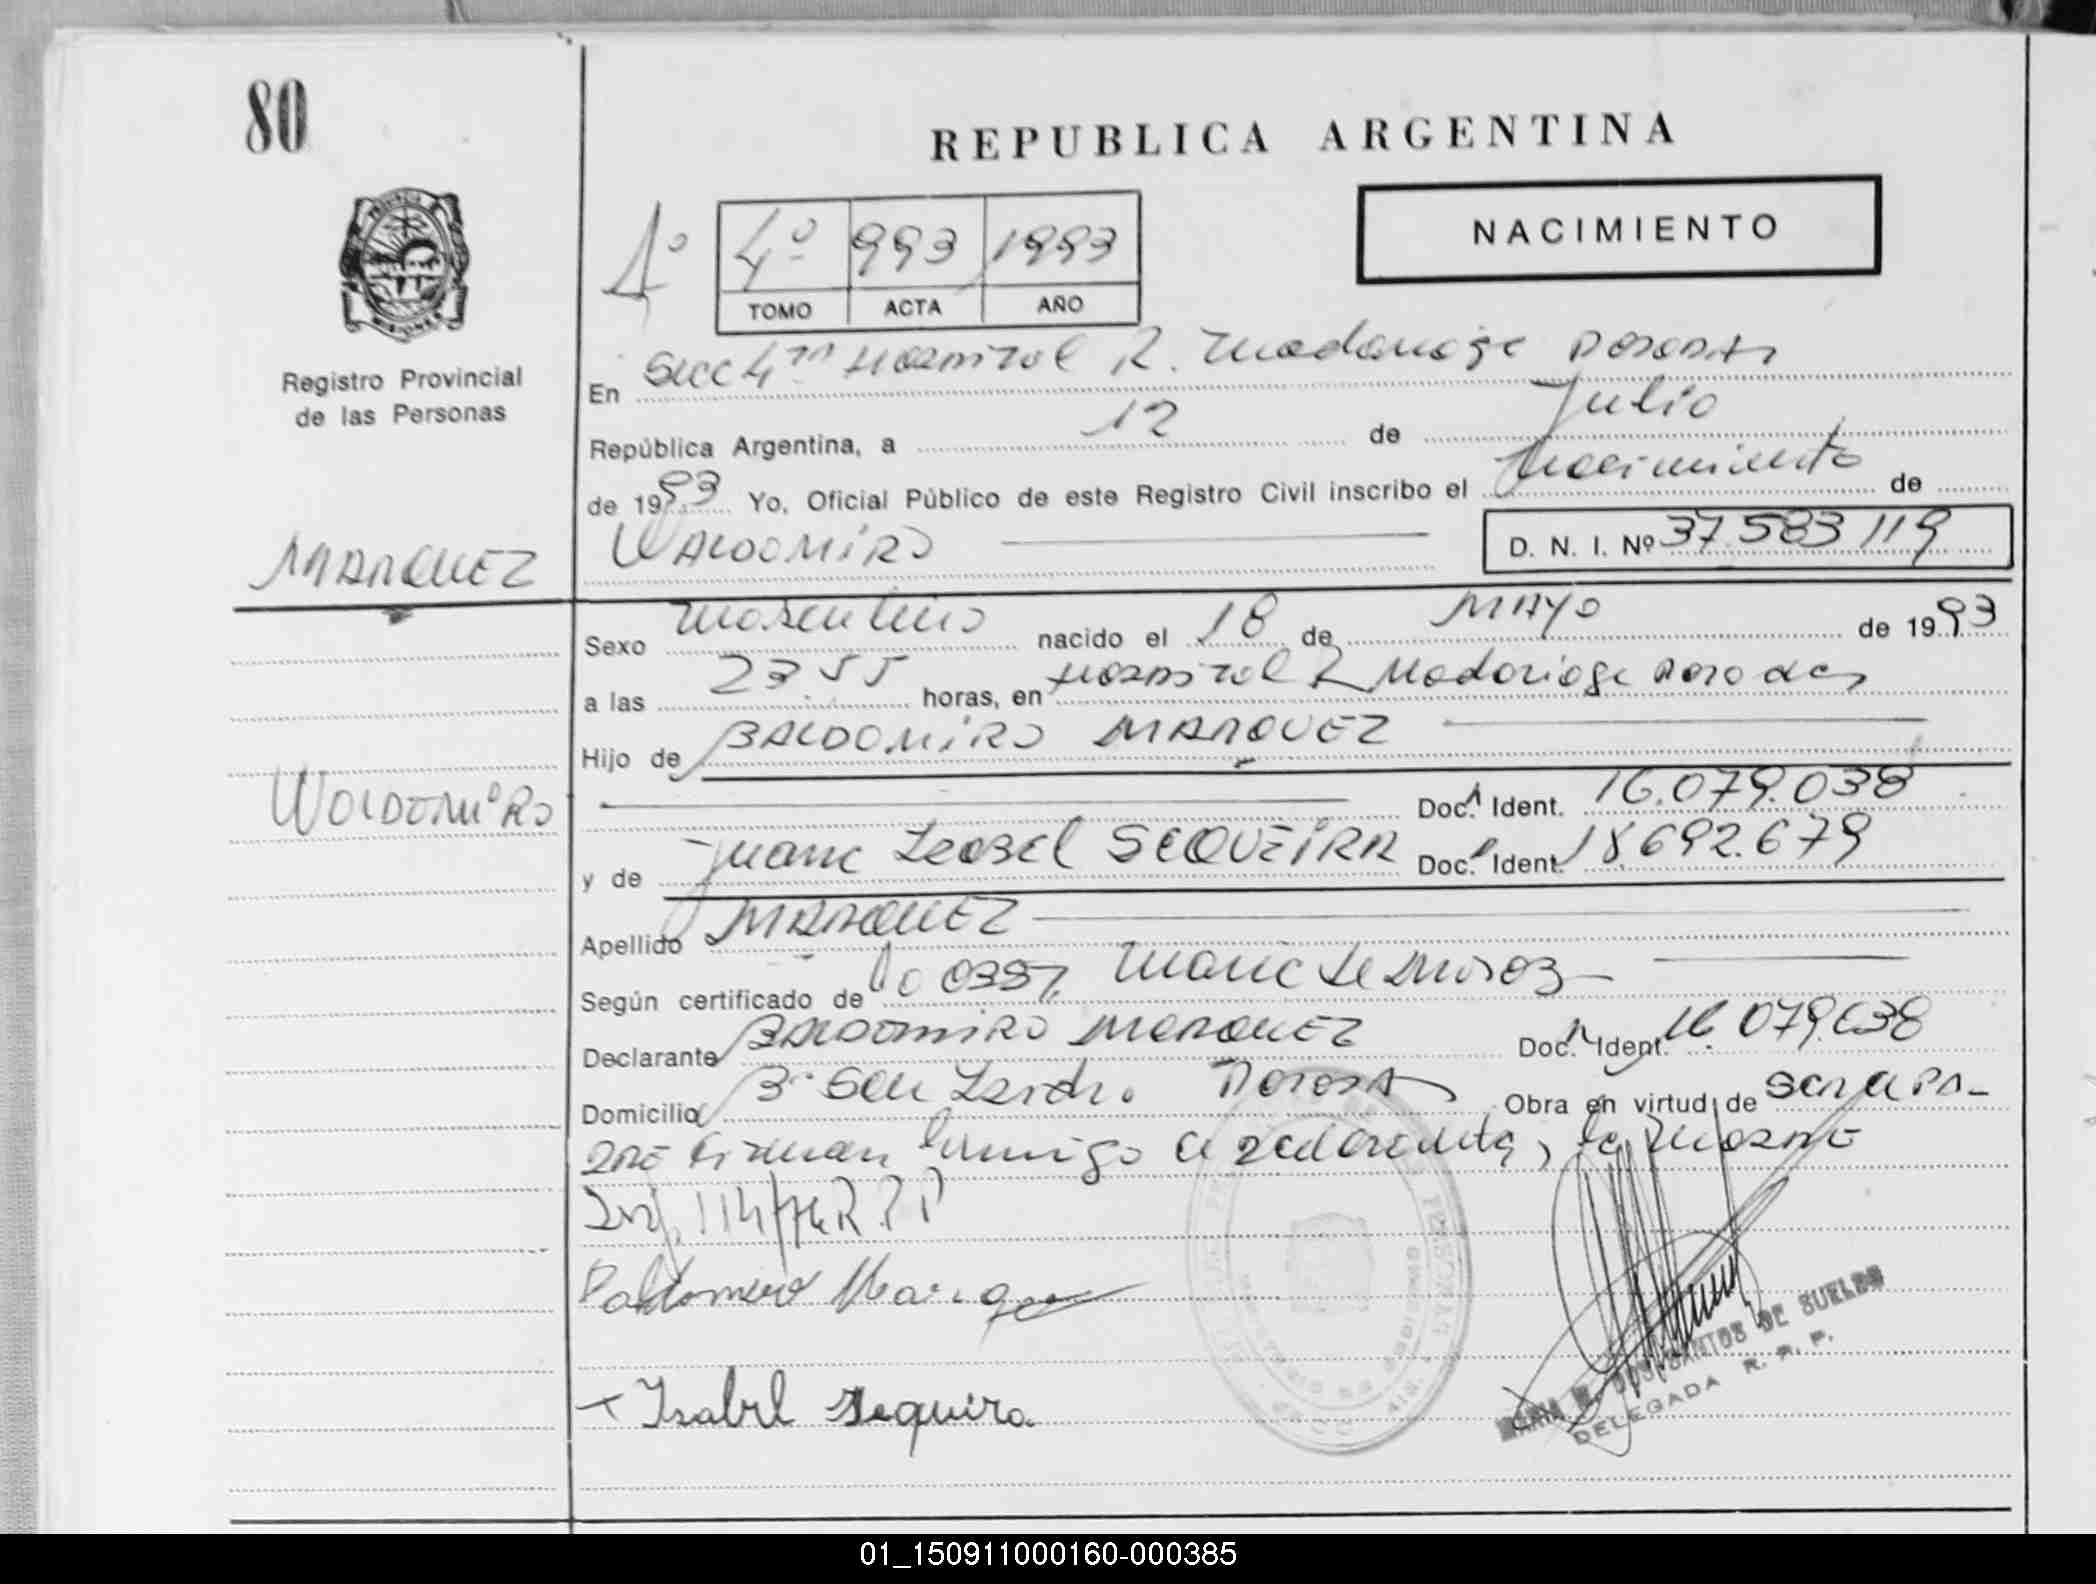 80
REPUBLICA ARGENTINA
NACIMIENTO
4º 4º 993 1993
TOMO ACTA AÑO
Registro Provincial
de las Personas
En Secc 4ta Hospital R. Madariaga Posadas
República Argentina, a 12 de Julio
de 1993 Yo, Oficial Público de este Registro Civil inscribo el Nacimiento de
MARQUEZ WALDOMIRO D. N. I. Nº 37.583.119
Sexo Masculino nacido el 18 de MAYO de 1993
a las 23.55 horas, en Hospital R Madariaga Posadas
Hijo de BALDOMIRO MARQUEZ
WALDOMIRO
Doc. Ident. 16.079.038
y de Juana Isabel SEQUEIRA Doc. Ident. 18.692.679
Apellido MARQUEZ
Según certificado de
Declarante BALDOMIRO MARQUEZ Doc. Ident. 16.079.038
Domicilio Posadas Obra en virtud de
firman conmigo el declarante, la madre
114/76 R.P.P
Baldomero Marque
Isabel Sequira
DOS SANTOS DE SUELDO
DELEGADA R. P. P.
01_150911000160-000385